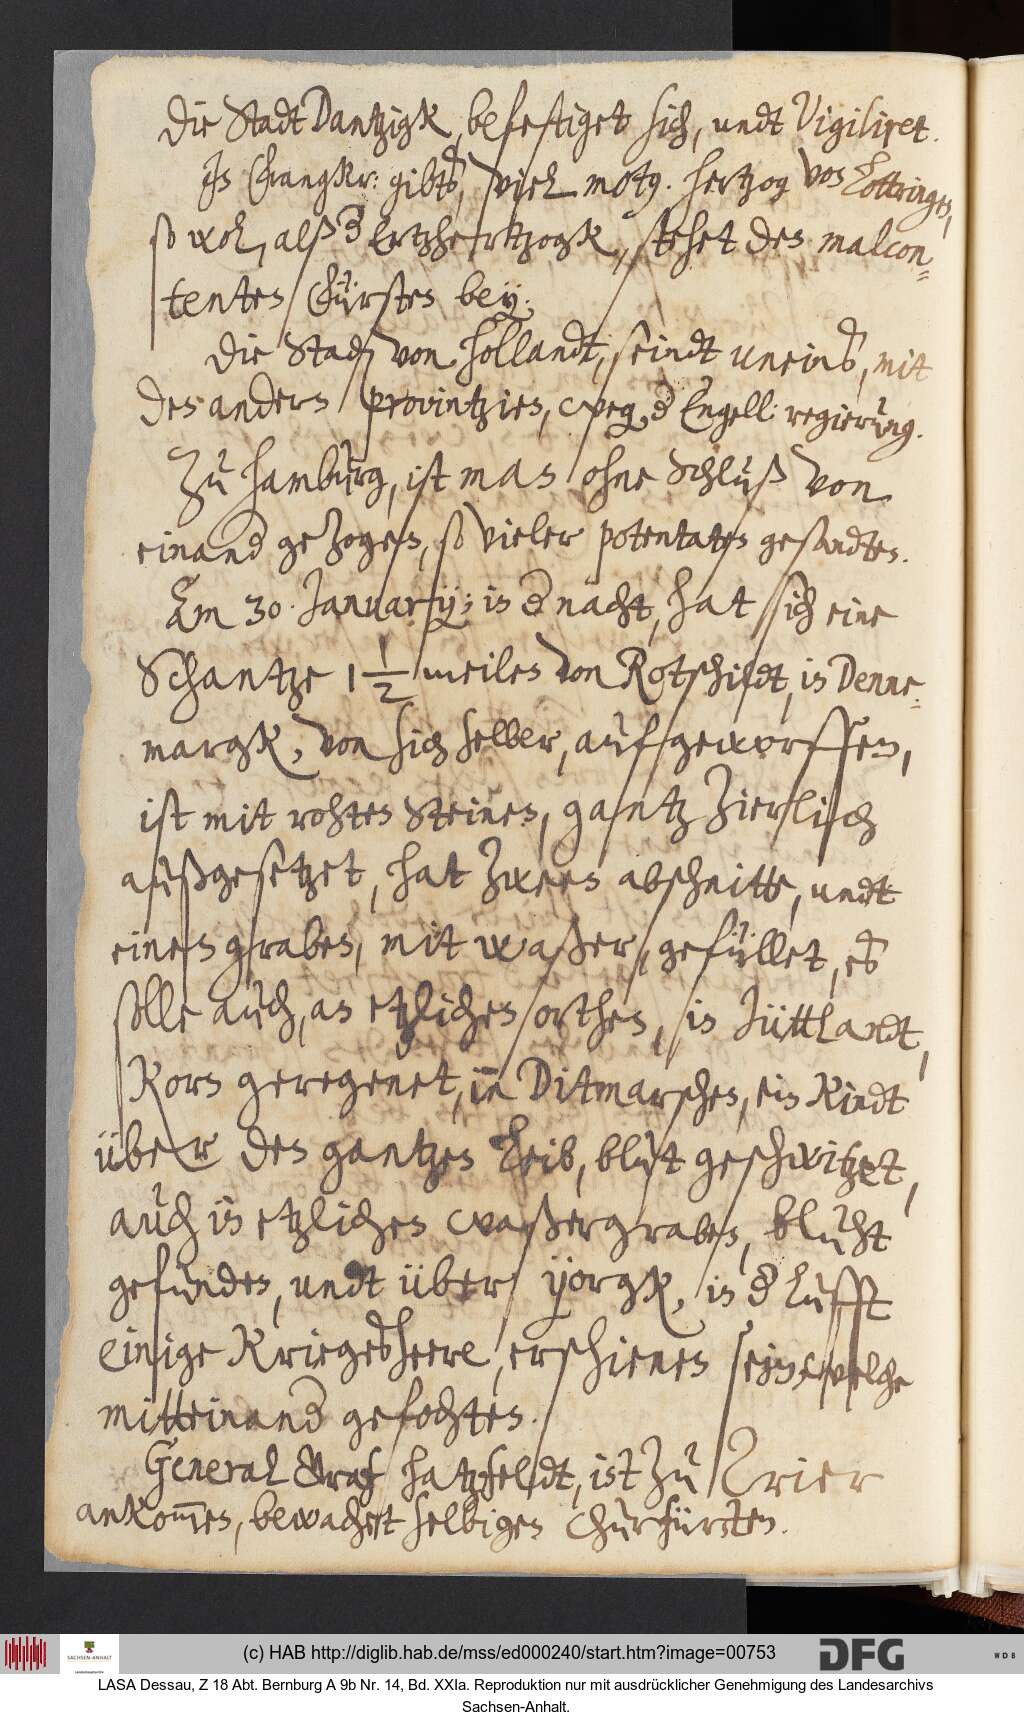 Die Stadt Dantzigk, befestiget sich, undt Vigiliret.
In Franckr: gibts, viel motg. hertzog von Lottringen,
so wol, alß d Ertzhertzogk, stehet den malcon-
tenten Fürsten bey.
Die Stad von hollandt, seindt uneins, mit
den andern provintzien, weg. d Engell: regierung.
Zu hamburg, ist man ohne Schluß von
einand gezogen, so vieler potentaten gesandten.
Am 30. Januarij; in d nacht, hat sich eine
Schantze 1 1/2 meilen von Rotschildt, in Denne-
margk, von sich selber, aufgeworffen,
ist mit rohten Steinen, gantz Zierlich
außgesetzet, hat Zween abschnitte, undt
einen graben, mit waßer, gefüllet, es
solle auch, an etzlichen orthen, in Jüttlandt,
Korn geregenet, in Ditmarschen, ein Kindt
über den gantzen Leib, blut geschwitzet,
auch in etzlichen waßergraben, bluht
gefunden, undt über Yorgk, in d Lufft
einige Kriegesheere, erschienen sein, welche
mitteinand gefochten.
General Graf hatzfeldt, ist zu Trier
ankom̅en, bewachet selbigen Churfürsten.
(c) HAB http://diglib.hab.de/mss/ed000240/start.htm?image=00753
SACHSEN-ANHALT
DFG
WDB
LASA Dessau, Z 18 Abt. Bernburg A 9b Nr. 14, Bd. XXIa. Reproduktion nur mit ausdrücklicher Genehmigung des Landesarchivs
Sachsen-Anhalt.